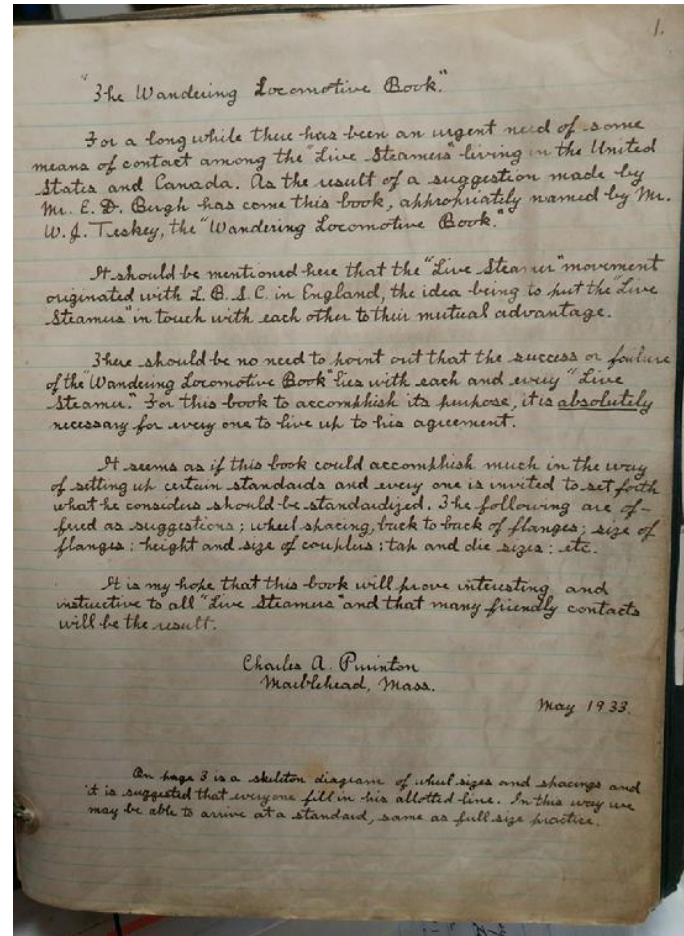 1.
"The Wandering Locomotive Book."
For a long while there has been an urgent need of some
means of contact among the "Live Steamers" living in the United
States and Canada. As the result of a suggestion made by
Mr. E. D. Bergh has come this book, appropriately named by Mr.
W. J. Teskey, the "Wandering Locomotive Book."
It should be mentioned here that the "Live Steamer" movement
originated with L. B. S. C. in England, the idea being to put the "Live
Steamers" in touch with each other to their mutual advantage.
There should be no need to point out that the success or failure
of the "Wandering Locomotive Book" lies with each and every "Live
Steamer." For this book to accomplish its purpose, it is absolutely
necessary for every one to live up to his agreement.
It seems as if this book could accomplish much in the way
of setting up certain standards and every one is invited to set forth
what he considers should be standardized. The following are of-
fered as suggestions; wheel spacing, back to back of flanges; size of
flanges; height and size of couplers; tap and die sizes; etc.
It is my hope that this book will prove interesting and
instructive to all "Live Steamers" and that many friendly contacts
will be the result.
Charles A. Purinton
Marblehead, Mass.
May 1933.
On page 3 is a skeleton diagram of wheel sizes and spacings and
it is suggested that everyone fill in his allotted line. In this way we
may be able to arrive at a standard, same as full size practice.